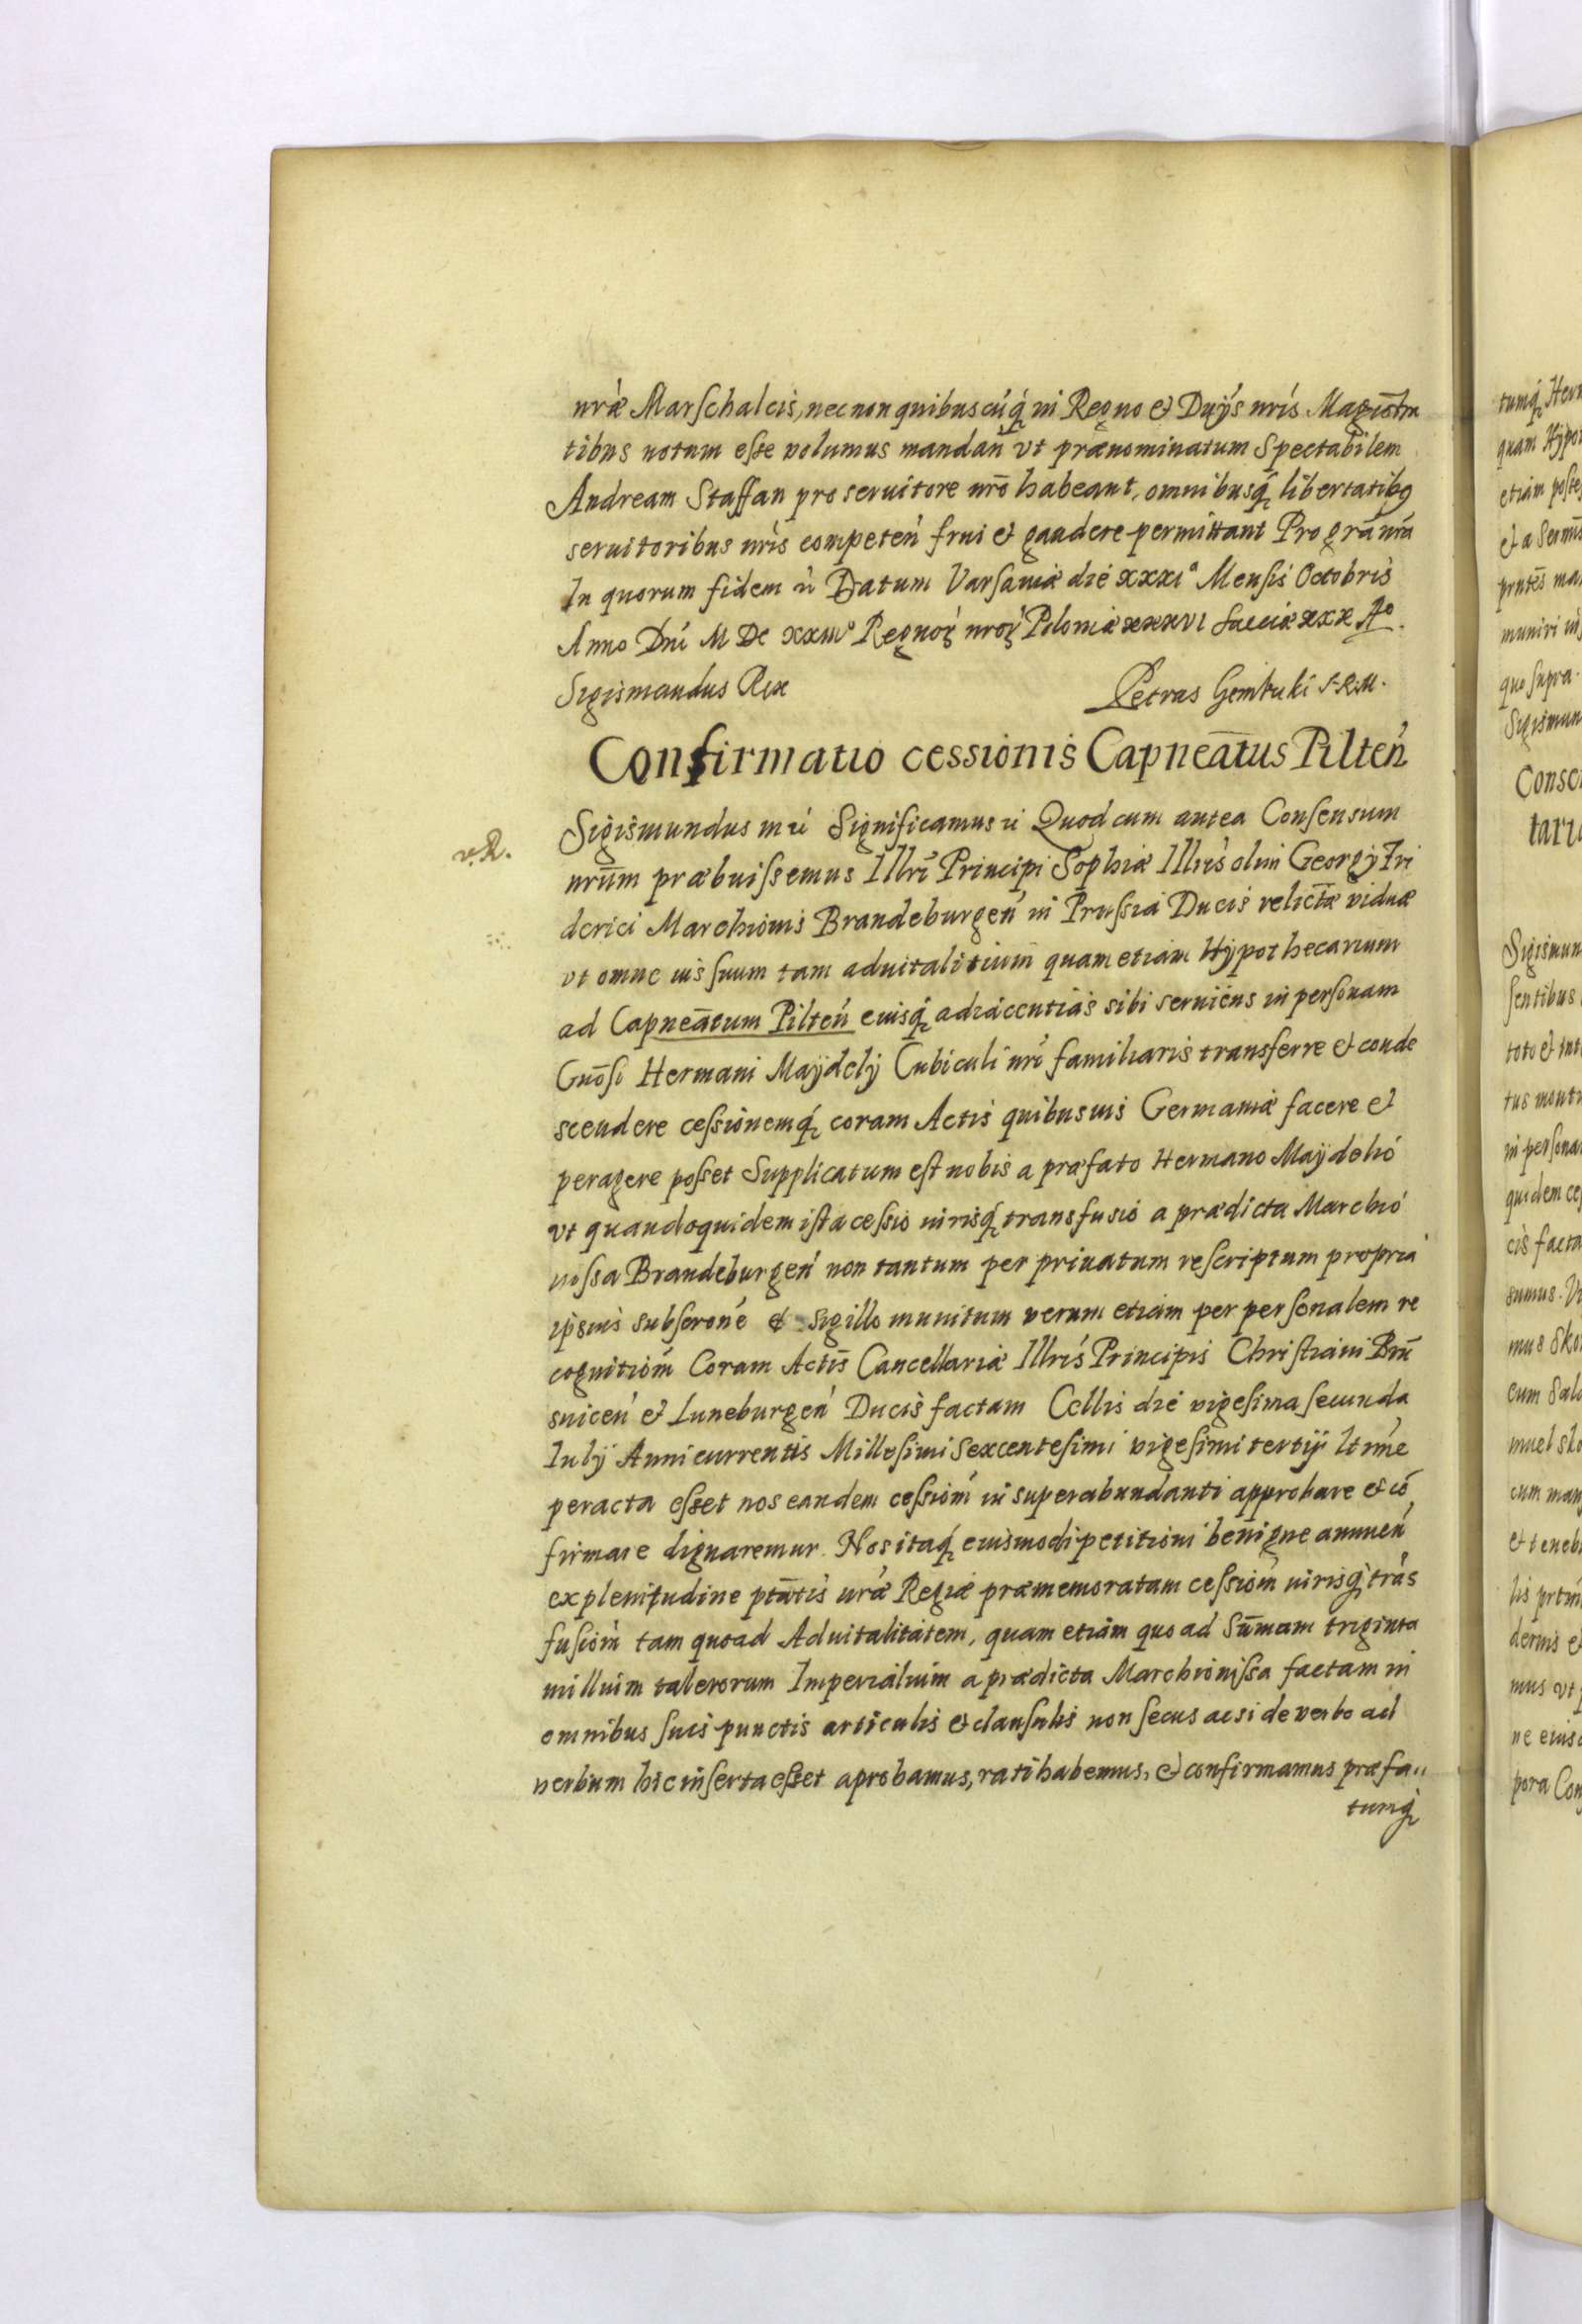 nrǽ Marſchalcis, necnon quibuscúq́ȝ in Regno et Dnijs nrís Magistra
tibus notum eſse volumus mandan̄ vt prænominatum Spectabilem
Andream Staffan pro seruitore nrō habeant, omnibusq́ȝ libertatibꝰ
seruitoribus nrís competeń frui et gaudere permittant Pro grã nrã
In quorum fidem rc̀ Datum Varſauiæ die xxxiª Mensis Octobris
Anno Dní M Dc xxiiiº Regnoꝝ nroꝝ Poloniæ xxxvi Sueciæ xxx Aº.
Sigismundus Rex
Petrus Gembicki S.R.M.
Confirmatio cessionis Capneātus Pilteń
v.R.
Sigismundus iii rc̀ Significamus rc̀ Quod cum antea Conſensum
nrūm præbuiſsemus Illrī Principi Sophiæ Illrís olim Georgij Fri
derici Marchionis Brandeburgeń in Pruſsia Ducis relictæ viduæ
vt omne ius ſuum tam aduitalitium quam etiam Hÿpothecarium
ad Capneātum Pilteń eiusq́ȝ adiacentias sibi seruiens in perſonam
Gnōſi Hermani Maÿdelij Cubiculi nrí familiaris transferre et conde
scendere ceſsionemq́ȝ coram Actis quibusuis Germaniæ facere et
peragere poſset Supplicatum eſt nobis a præfato Hermano Maÿdelio
vt quandoquidem iſta ceſsio iurisq́ȝ transfusio a prædicta Marchio
niſsa Brandeburgeń non tantum per priuatum reſcriptum propria
ipsius subſcroné et sigillo munitum verum etiam per perſonalem re
cognitioḿ Coram Actis̄ Cancellariæ Illrís Principis Chriſtiani Brū
suiceń et Luneburgeń Ducis factam Cellis die vigeſima ſecunda
Iulij Anni currentis Milleſimi Sexcenteſimi vigeſimi tertij ltiḿe
peracta eſset nos eandem ceſsioḿ in superabundanti approbare et có
firmare dignaremur. Nos itaq́ȝ eiusmodi petitioni benigne annueń
ex plenitudine ptātis nrǽ Regiæ præmemoratam ceſsioḿ iurisq́ȝ trás
fuſioḿ tam quoad Aduitalitatem, quam etiam quo ad Sūmam triginta
millium talerorum Imperialium a prædicta Marchioniſsa factam in
omnibus ſuis punctis articulis et clauſulis non ſecus ac si de verbo ad
verbum hic inſerta eſset aprobamus, ratihabemus, et confirmamus præfa„
tumq́ȝ